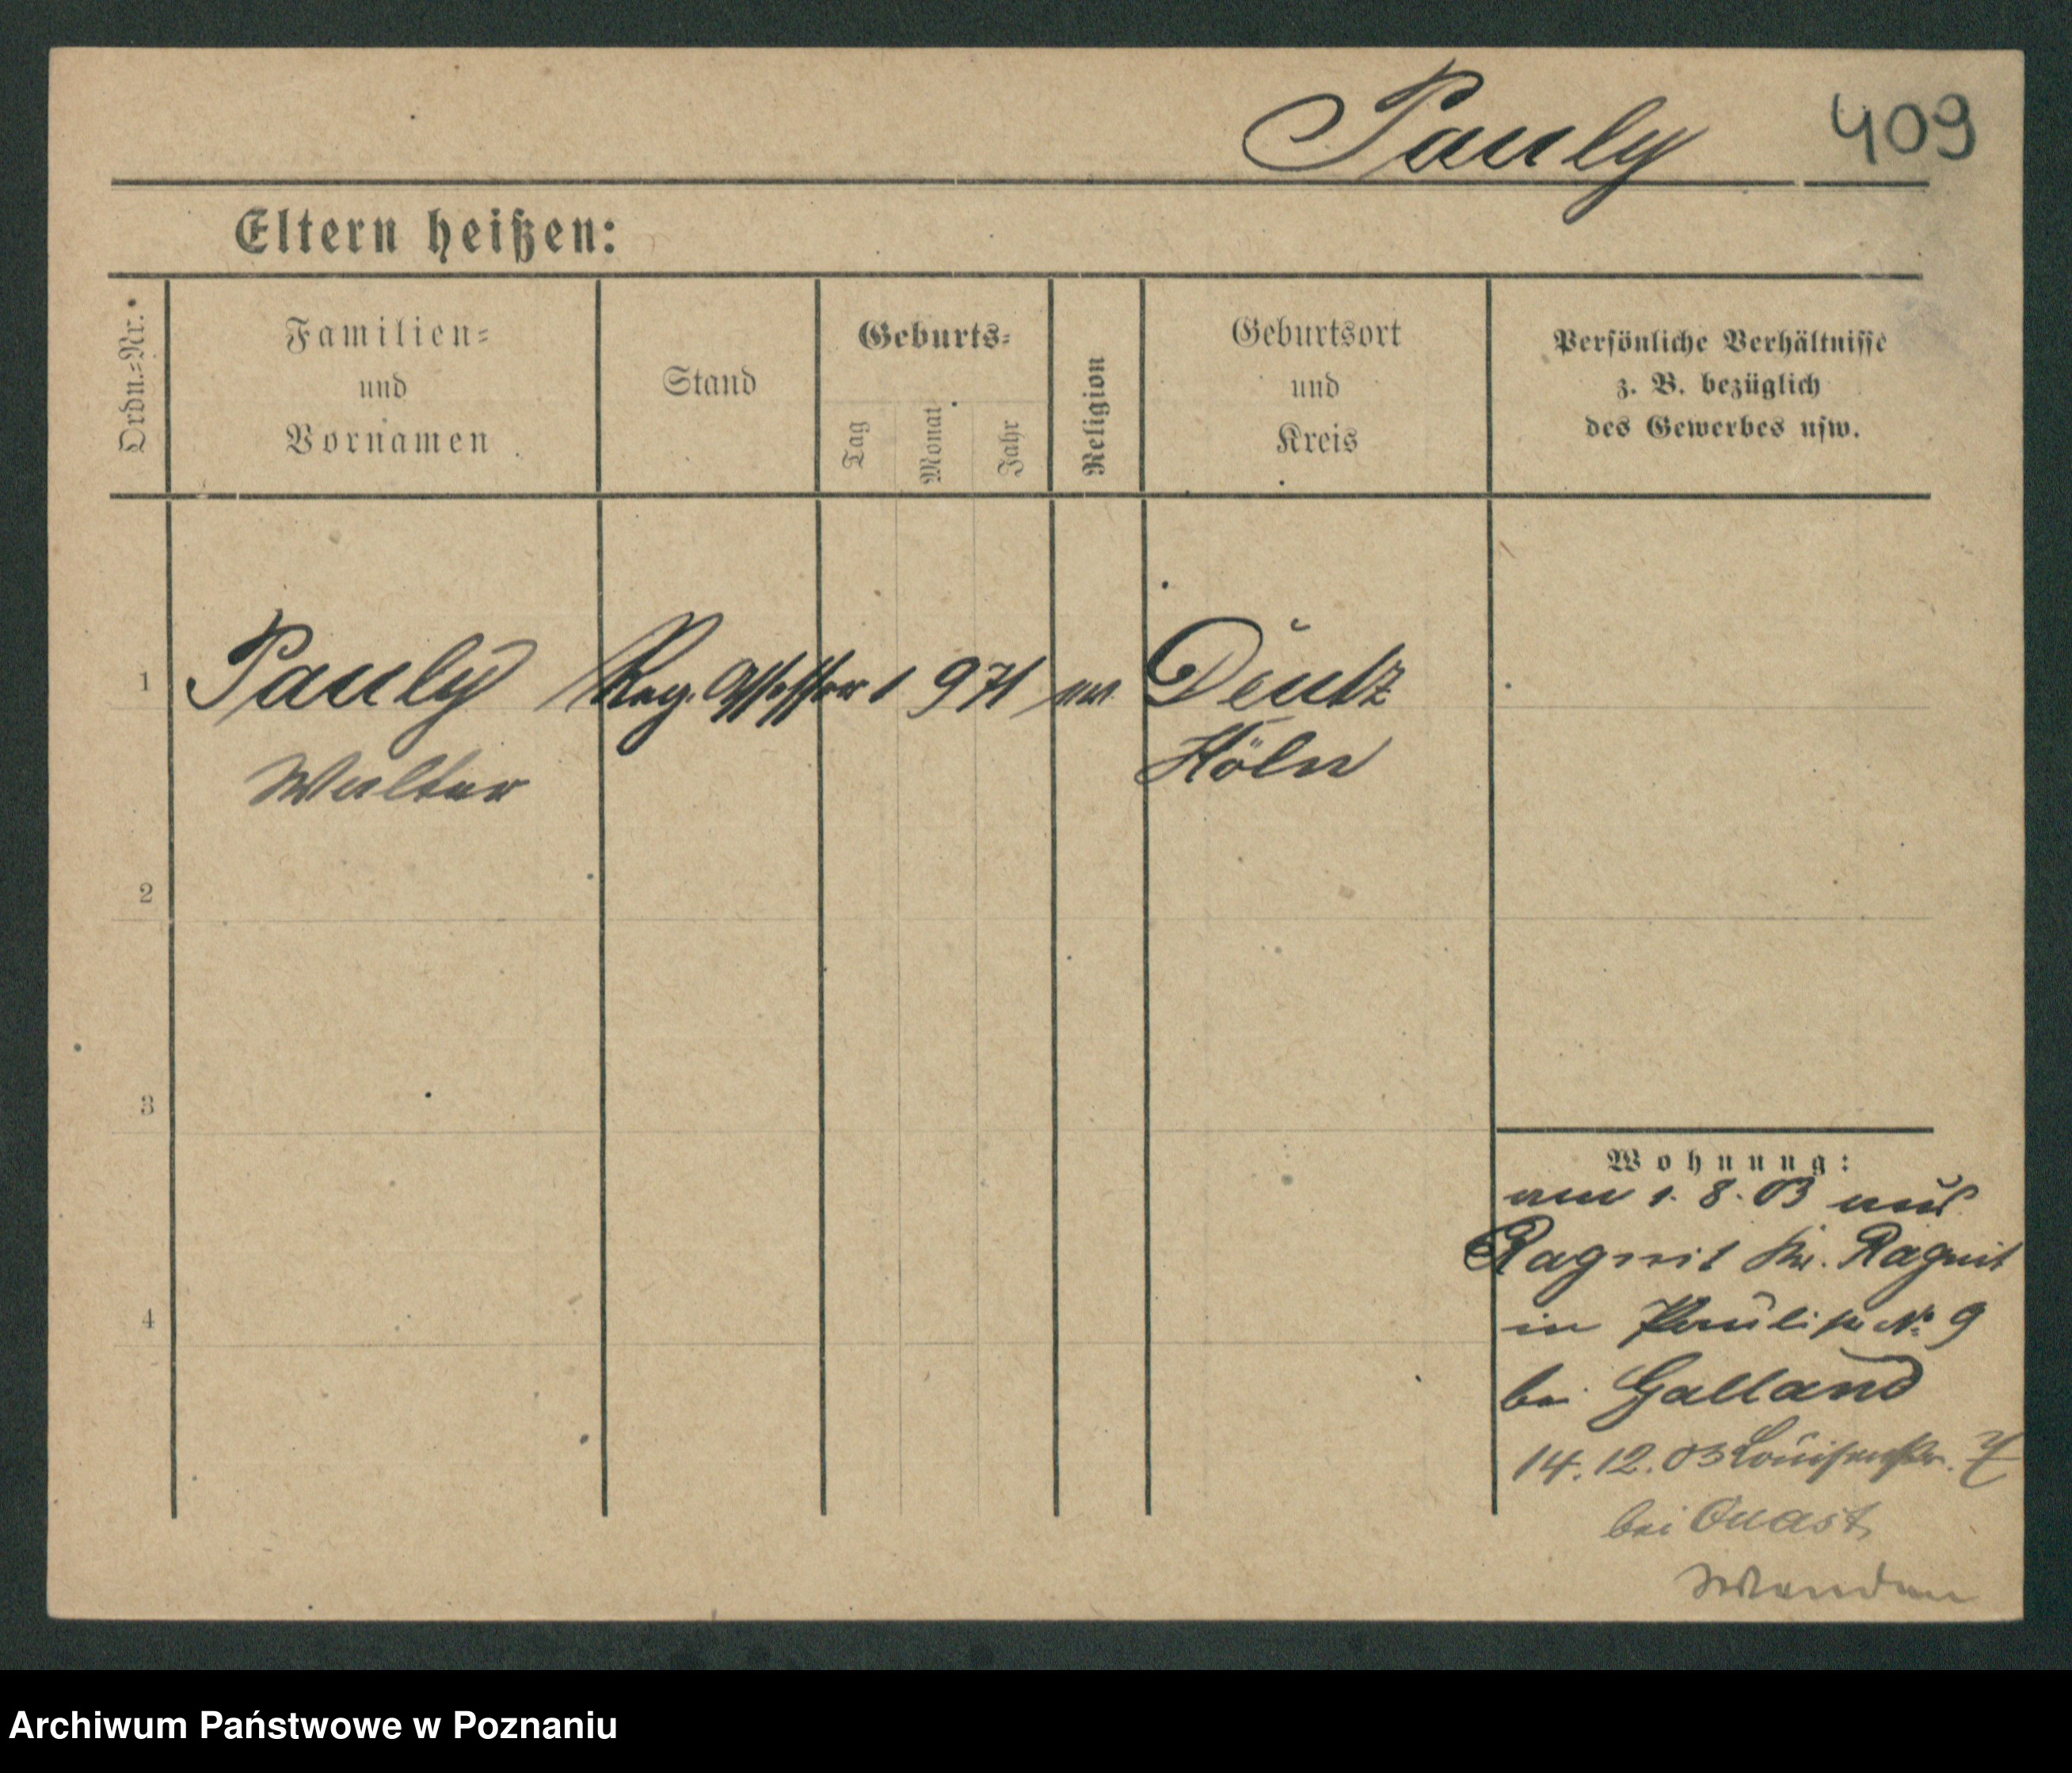 Pauly 409
Eltern heißen:
Ordn.-Nr.
Familien-
und
Vornamen
Stand
Geburts-
Tag
Monat
Jahr
Religion
Geburtsort
und
Kreis
Persönliche Verhältnisse
z. B. bezüglich
des Gewerbes usw.
1 Pauly Reg. Assessor 1 9 71 ev. Deutz
Walter Köln
2
3
4
Wohnung:
am 1. 8. 03 aus
Ragnit Kr. Ragnit
in Paulistr № 9
bei Galland
14. 12. 03 Louisenstr.
bei Quast
Archiwum Państwowe w Poznaniu